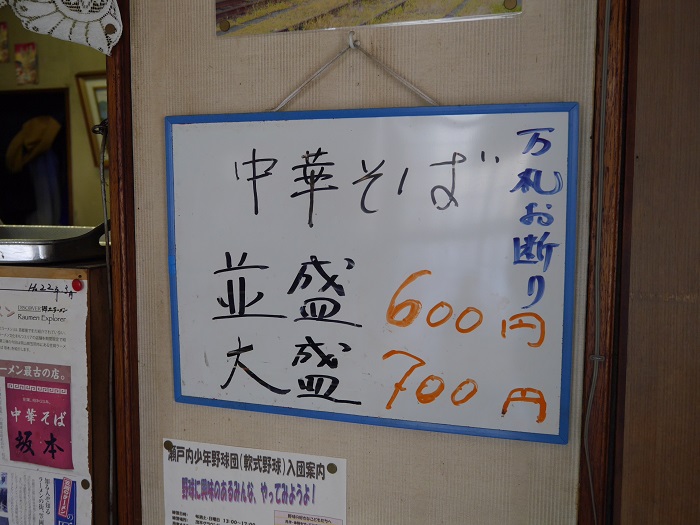 中華そば
並盛 600円
大盛 700円
万札お断り
DISCOVER 郷土ラーメン
Raumen Explorer
ーメン最古の店。
中華そば
坂本
瀬戸内少年野球団(軟式野球)入団案内
野球に興味のあるみんな、やってみようよ!